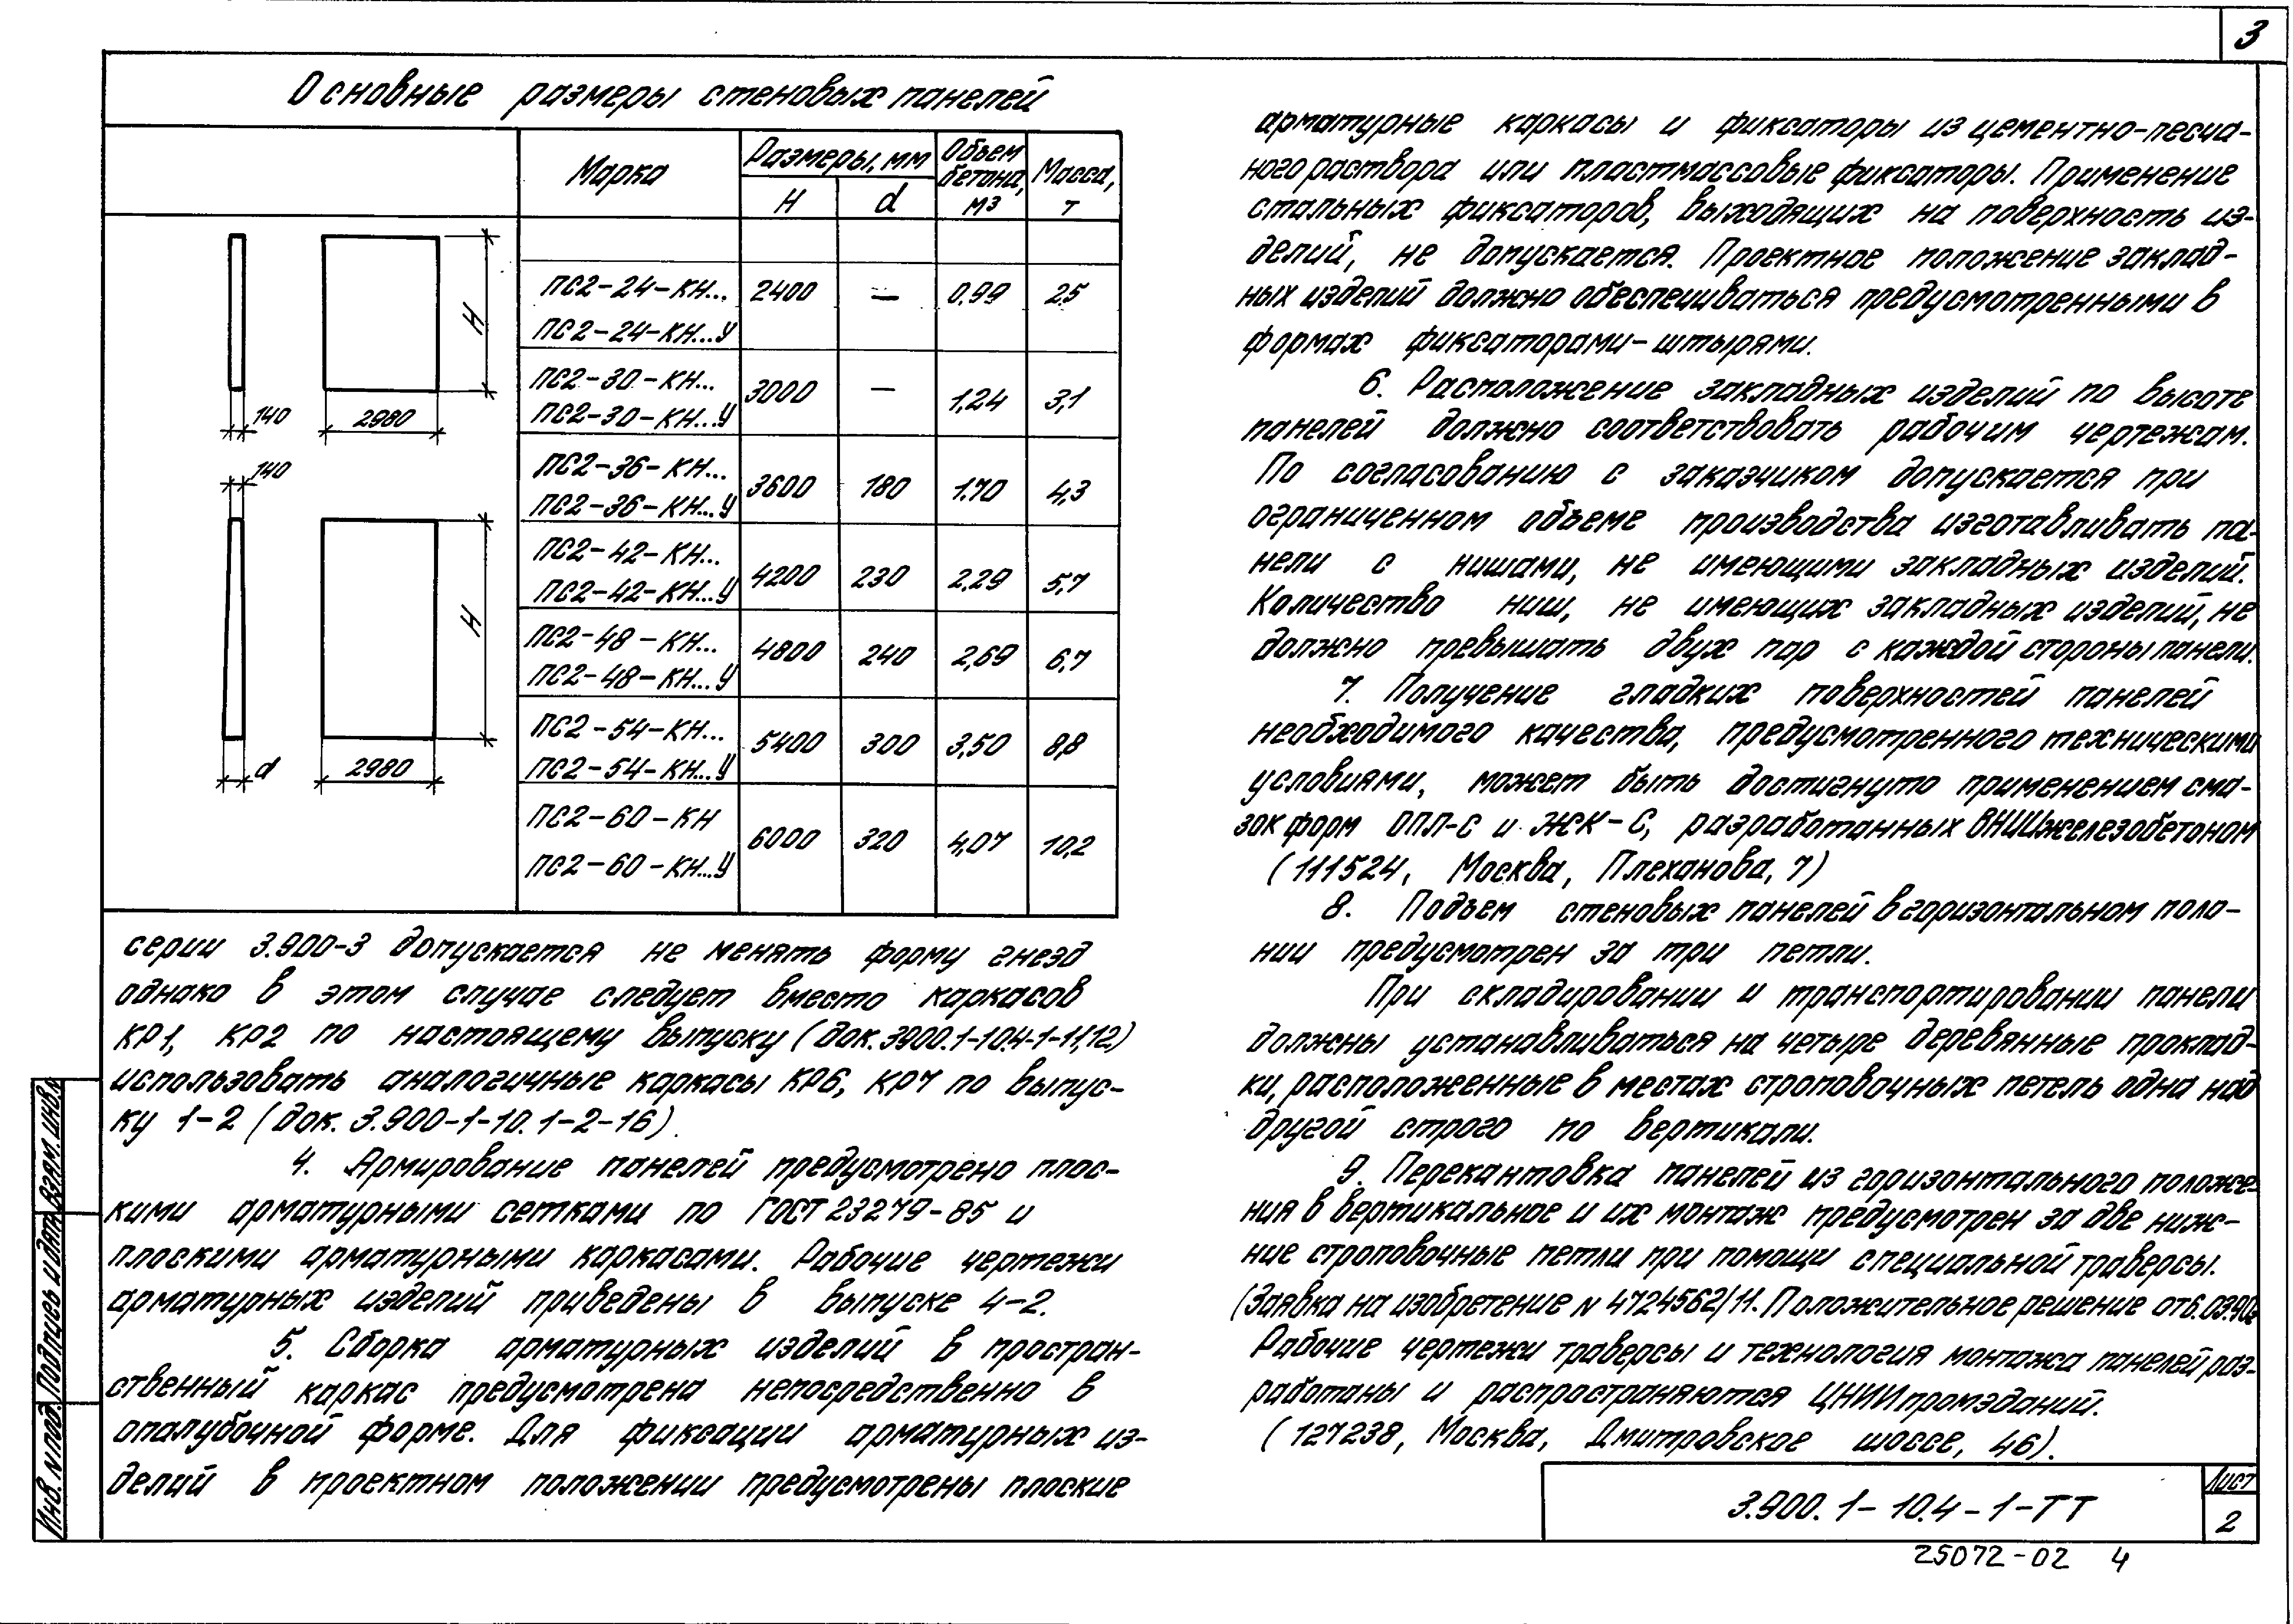 3
Основные размеры стеновых панелей
Марка
Размеры, мм
H
d
Объем бетона, м3
Масса, т
ПС2-24-КН...
ПС2-24-КН...У
2400
—
0,99
2,5
ПС2-30-КН...
ПС2-30-КН...У
3000
—
1,24
3,1
ПС2-36-КН...
ПС2-36-КН...У
3600
180
1.70
4,3
ПС2-42-КН...
ПС2-42-КН...У
4200
230
2,29
5,7
ПС2-48-КН...
ПС2-48-КН...У
4800
240
2,69
6,7
ПС2-54-КН...
ПС2-54-КН...У
5400
300
3,50
8,8
ПС2-60-КН
ПС2-60-КН...У
6000
320
4,07
10,2
140
2980
H
140
d
2980
H
серии 3.900-3 допускается не менять форму гнезд
однако в этом случае следует вместо каркасов
КР1, КР2 по настоящему выпуску (док. 3.900.1-10.4-1-11,12)
использовать аналогичные каркасы КР6, КР7 по выпус-
ку 1-2 (док. 3.900-1-10.1-2-16).
4. Армирование панелей предусмотрено плос-
кими арматурными сетками по ГОСТ 23279-85 и
плоскими арматурными каркасами. Рабочие чертежи
арматурных изделий приведены в выпуске 4-2.
5. Сборка арматурных изделий в простран-
ственный каркас предусмотрена непосредственно в
опалубочной форме. Для фиксации арматурных из-
делий в проектном положении предусмотрены плоские
арматурные каркасы и фиксаторы из цементно-песча-
ного раствора или пластмассовые фиксаторы. Применение
стальных фиксаторов, выходящих на поверхность из-
делий, не допускается. Проектное положение заклад-
ных изделий должно обеспечиваться предусмотренными в
формах фиксаторами-штырями.
6. Расположение закладных изделий по высоте
панелей должно соответствовать рабочим чертежам.
По согласованию с заказчиком допускается при
ограниченном объеме производства изготавливать па-
нели с нишами, не имеющими закладных изделий.
Количество ниш, не имеющих закладных изделий, не
должно превышать двух пар с каждой стороны панели.
7. Получение гладких поверхностей панелей
необходимого качества, предусмотренного техническими
условиями, может быть достигнуто применением сма-
зок форм ОПЛ-С и ЖК-С, разработанных ВНИИжелезобетоном
(111524, Москва, Плеханова, 7)
8. Подъем стеновых панелей в горизонтальном поло-
нии предусмотрен за три петли.
При складировании и транспортировании панели
должны устанавливаться на четыре деревянные проклад-
ки, расположенные в местах строповочных петель одна над
другой строго по вертикали.
9. Перекантовка панелей из горизонтального положе-
ния в вертикальное и их монтаж предусмотрен за две ниж-
ние строповочные петли при помощи специальной траверсы.
(Заявка на изобретение N 4724562/11. Положительное решение от 6.03.90г.
Рабочие чертежи траверсы и технология монтажа панелей раз-
работаны и распространяются ЦНИИпромзданий.
(127238, Москва, Дмитровское шоссе, 46).
Инв. N подл.
Подпись и дата
Взам. инв. N
3.900.1-10.4-1-ТТ
Лист
2
25072-02 4